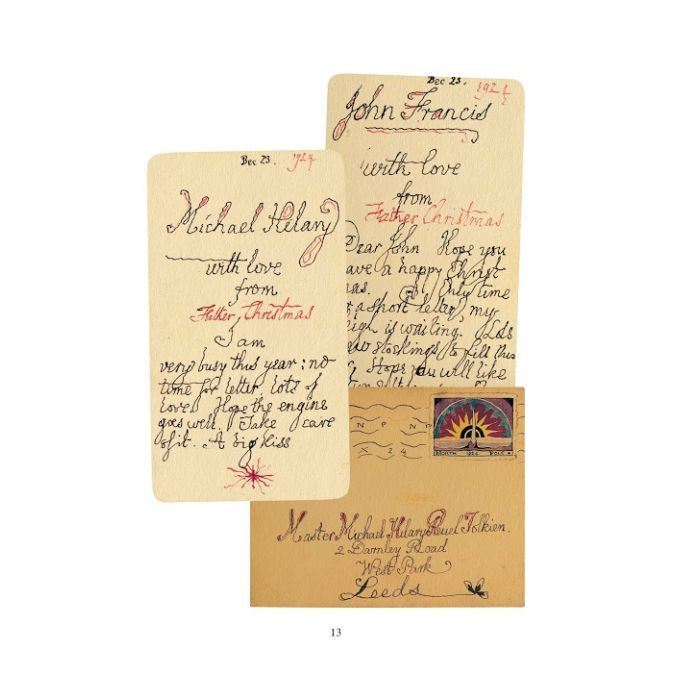 Dec 23. 1924
Michael Hilary
with love
from
Father Christmas
I am
very busy this year : no
time for letter lots of
love. Hope the engine
goes well. Take care
of it. A big kiss
Dec 23. 1924
John Francis
with love
from
Father Christmas
Dear John Hope you
ave a happy Christ
as. Only time
a short letter, my
is waiting. Lots
stockings to fill this
Hope you will like
N P N P
X 24
NORTH 1924 POLE
Master Michael Hilary Reuel Tolkien.
2 Darnley Road
West Park
Leeds
13